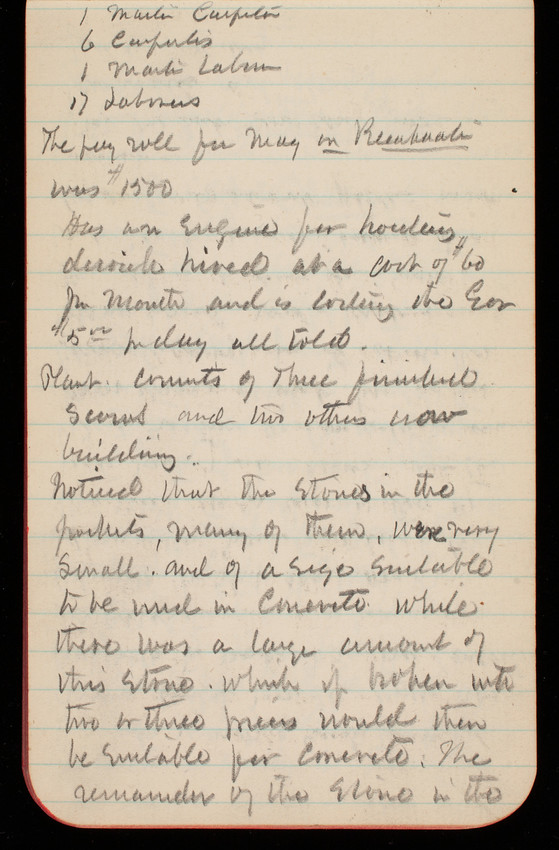 1 Master Carpenter
6 Carpenters
1 Master Labor
17 Laborers
The pay roll for May on
was $1500
Has an Engine for hoisting
derrick hired at a cost of $60
per Month and is costing the Gov
$5.00 per day all told.
Plant. consists of three finished
Scows and two others now
building.
Noticed that the stones in the
pockets, many of them, were very
Small. and of a size suitable
to be used in Concrete while
there was a large amount of
this Stone. which if broken into
two or three pieces would then
be suitable for concrete. The
remainder of the Stone in the